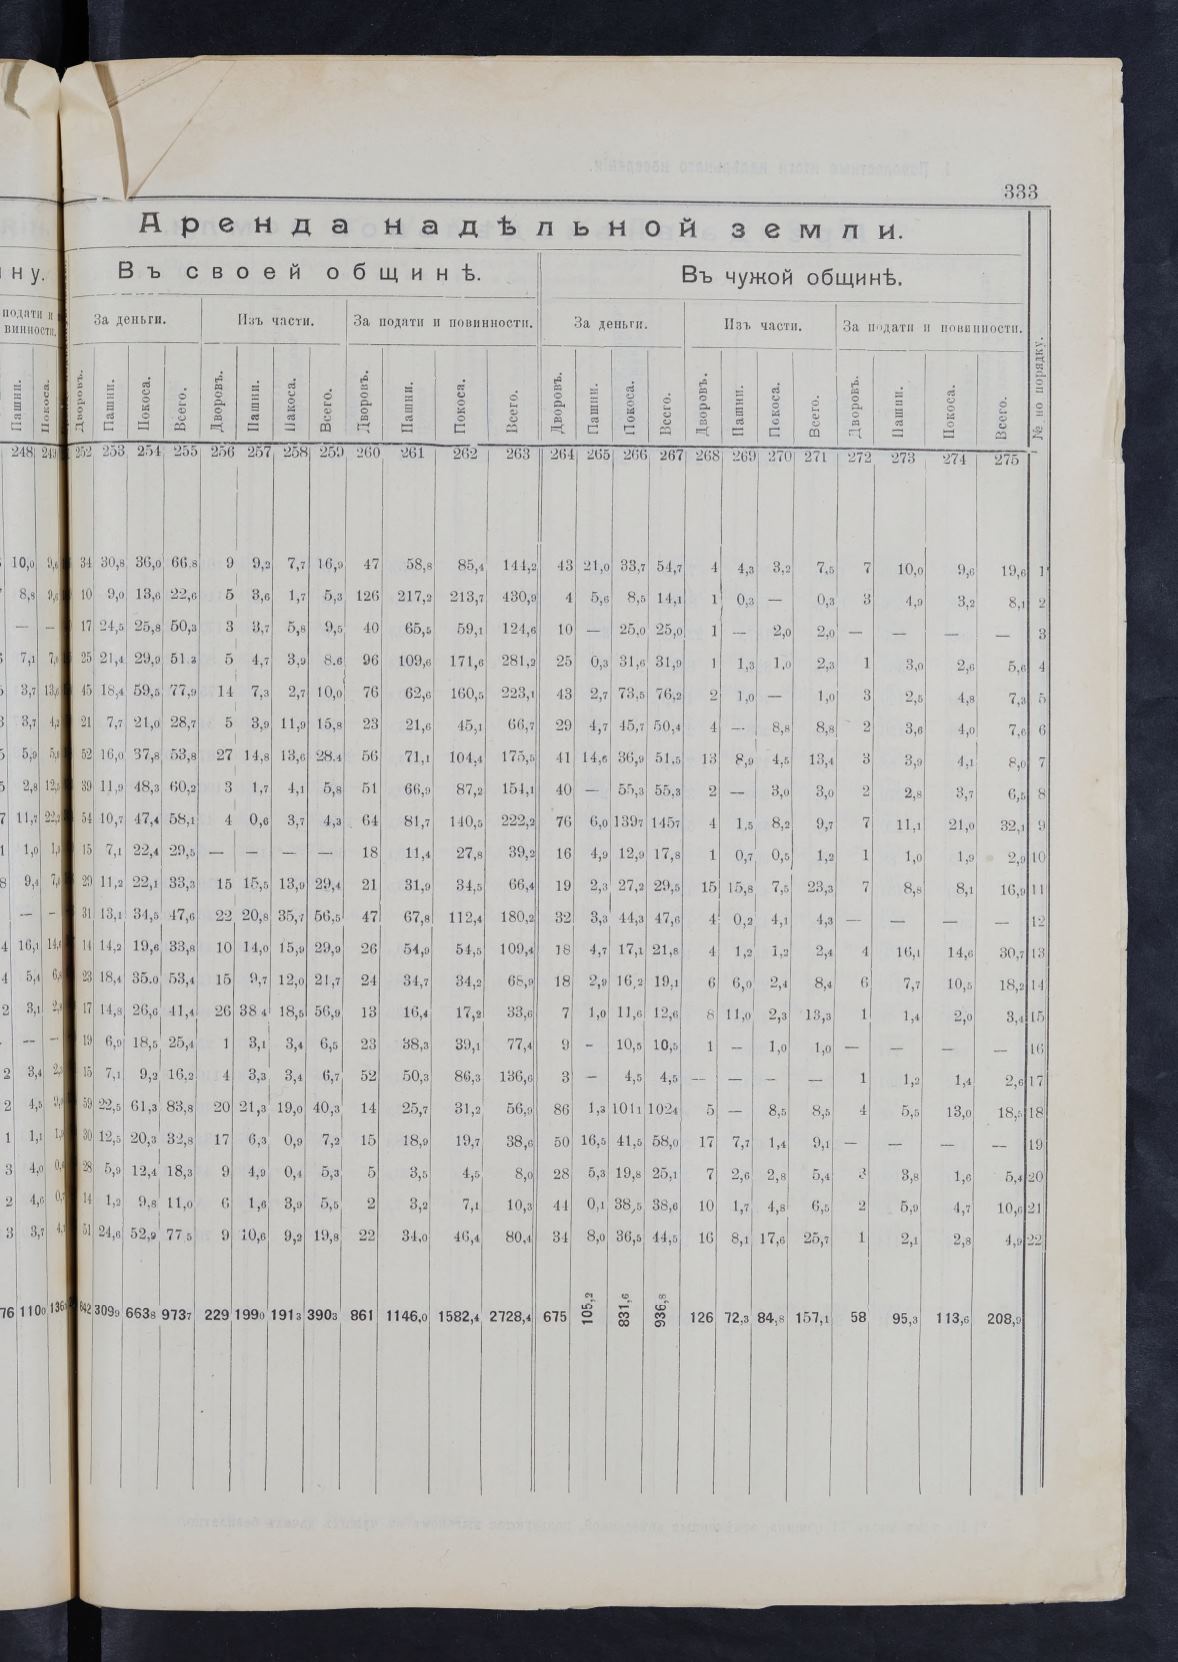 333
Аренда надѣльной земли.
ну. Въ своей общинѣ. Въ чужой общинѣ.
подати и За деньги. Изъ части. За подати и повинности. За деньги. Изъ части. За подати и повинности.
винности.
Пашни. Покоса. Дворовъ. Пашни. Покоса. Всего. Дворовъ. Пашни. Покоса. Всего. Дворовъ. Пашни. Покоса. Всего. Дворовъ. Пашни. Покоса. Всего. Дворовъ. Пашни. Покоса. Всего. Дворовъ. Пашни. Покоса. Всего. № по порядку.
248 249 252 253 254 255 256 257 258 259 260 261 262 263 264 265 266 267 268 269 270 271 272 273 274 275
10,0 34 30,8 36,0 66,8 9 9,2 7,7 16,9 47 58,8 85,4 144,2 43 21,0 33,7 54,7 4 4,3 3,2 7,5 7 10,0 9,6 19,6 1
8,8 10 9,0 13,6 22,6 5 3,6 1,7 5,3 126 217,2 213,7 430,9 4 5,6 8,5 14,1 1 0,3 — 0,3 3 4,9 3,2 8,1 2
— — 17 24,5 25,8 50,3 3 3,7 5,8 9,5 40 65,5 59,1 124,6 10 — 25,0 25,0 1 — 2,0 2,0 — — — — 3
7,1 25 21,4 29,9 51,3 5 4,7 3,9 8,6 96 109,6 171,6 281,2 25 0,3 31,6 31,9 1 1,3 1,0 2,3 1 3,0 2,6 5,6 4
3,7 45 18,4 59,5 77,9 14 7,3 2,7 10,0 76 62,6 160,5 223,1 43 2,7 73,5 76,2 2 1,0 — 1,0 3 2,5 4,8 7,3 5
3,7 21 7,7 21,0 28,7 5 3,9 11,9 15,8 23 21,6 45,1 66,7 29 4,7 45,7 50,4 4 — 8,8 8,8 2 3,6 4,0 7,6 6
5,9 52 16,0 37,8 53,8 27 14,8 13,6 28,4 56 71,1 104,4 175,5 41 14,6 36,9 51,5 13 8,9 4,5 13,4 3 3,9 4,1 8,0 7
2,8 39 11,9 48,3 60,2 3 1,7 4,1 5,8 51 66,9 87,2 154,1 40 — 55,3 55,3 2 — 3,0 3,0 2 2,8 3,7 6,5 8
7 11,7 54 10,7 47,4 58,1 4 0,6 3,7 4,3 64 81,7 140,5 222,2 76 6,0 1397 1457 4 1,5 8,2 9,7 7 11,1 21,0 32,1 9
1 1,0 15 7,1 22,4 29,5 — — — — 18 11,4 27,8 39,2 16 4,9 12,9 17,8 1 0,7 0,5 1,2 1 1,0 1,9 2,9 10
8 9,4 29 11,2 22,1 33,3 15 15,5 13,9 29,4 21 31,9 34,5 66,4 19 2,3 27,2 29,5 15 15,8 7,5 23,3 7 8,8 8,1 16,9 11
— — 31 13,1 34,5 47,6 22 20,8 35,7 56,5 47 67,8 112,4 180,2 32 3,3 44,3 47,6 4 0,2 4,1 4,3 — — — — 12
4 16,1 14 14,2 19,6 33,8 10 14,0 15,9 29,9 26 54,9 54,5 109,4 18 4,7 17,1 21,8 4 1,2 1,2 2,4 4 16,1 14,6 30,7 13
4 5,4 23 18,4 35,0 53,4 15 9,7 12,0 21,7 24 34,7 34,2 68,9 18 2,9 16,2 19,1 6 6,0 2,4 8,4 6 7,7 10,5 18,2 14
2 3,1 17 14,8 26,6 41,4 26 38 4 18,5 56,9 13 16,4 17,2 33,6 7 1,0 11,6 12,6 8 11,0 2,3 13,3 1 1,4 2,0 3,4 15
— — 19 6,9 18,5 25,4 1 3,1 3,4 6,5 23 38,3 39,1 77,4 9 - 10,5 10,5 1 — 1,0 1,0 — — — — 16
2 3,4 15 7,1 9,2 16,2 4 3,3 3,4 6,7 52 50,3 86,3 136,6 3 — 4,5 4,5 — — — — 1 1,2 1,4 2,6 17
2 4,5 59 22,5 61,3 83,8 20 21,3 19,0 40,3 14 25,7 31,2 56,9 86 1,3 1011 1024 5 — 8,5 8,5 4 5,5 13,0 18,5 18
1 1,1 30 12,5 20,3 32,8 17 6,3 0,9 7,2 15 18,9 19,7 38,6 50 16,5 41,5 58,0 17 7,7 1,4 9,1 — — — — 19
3 4,0 28 5,9 12,4 18,3 9 4,9 0,4 5,3 5 3,5 4,5 8,0 28 5,3 19,8 25,1 7 2,6 2,8 5,4 3 3,8 1,6 5,4 20
2 4,6 14 1,2 9,8 11,0 6 1,6 3,9 5,5 2 3,2 7,1 10,3 44 0,1 38,5 38,6 10 1,7 4,8 6,5 2 5,9 4,7 10,6 21
3 3,7 51 24,6 52,9 77 5 9 10,6 9,2 19,8 22 34,0 46,4 80,4 34 8,0 36,5 44,5 16 8,1 17,6 25,7 1 2,1 2,8 4,9 22
76 1100 642 3099 6638 9737 229 1990 1913 3903 861 1146,0 1582,4 2728,4 675 105,2 831,6 936,8 126 72,3 84,8 157,1 58 95,3 113,6 208,9